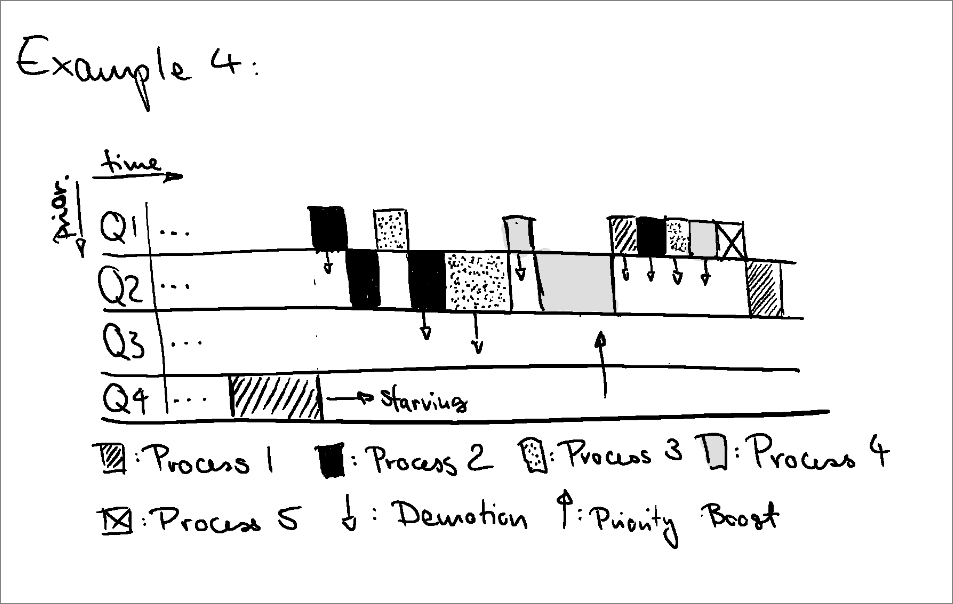 Example 4:
time
prior.
Q1 ...
Q2 ...
Q3 ...
Q4 ... starving
: Process 1 : Process 2 : Process 3 : Process 4
: Process 5 : Demotion : Priority Boost